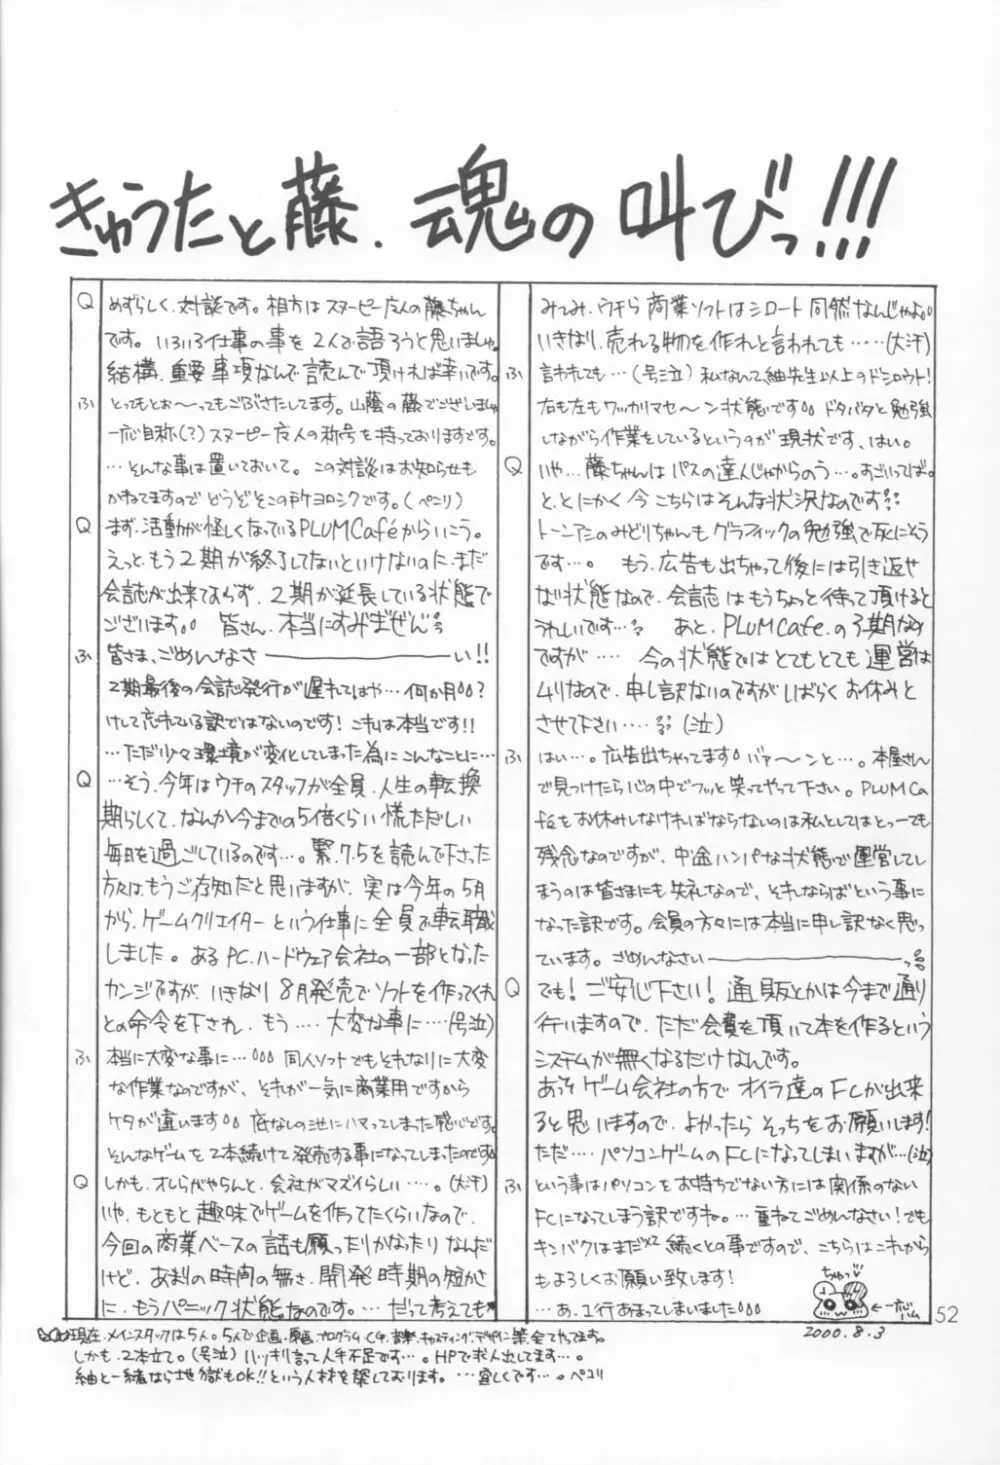 きゅうたと藤、魂の叫びっ!!!
Q めずらしく、対談です。相方はスヌーピー友人の藤ちゃん
です。いろいろ仕事の事を2人で語ろうと思いましゅ。
結構、重要事項なんで読んで頂ければ幸いです。
ふ とってもとお〜ってもごぶさたしてます。山蔭の藤でございましゅ
一応自称(?)スヌーピー友人の称号を持っておりますです。
…そんな事は置いておいて。この対談はお知らせも
かねてますのでどうぞそこの所ヨロシクです。(ペニリ)
Q まず、活動が怪しくなっているPLUM Caféからいこう。
えっと、もう2期が終了してないといけないのに、まだ
会誌が出来ておらず、2期が延長している状態で
ございます。。皆さん、本当にすみませぜん
ふ 皆さま、ごめんなさ―――――い!!
2期最後の会誌発行が遅れてはや…何か月。。?
けして忘れている訳ではないのです!これは本当です!!
…ただ少々環境が変化してしまった為にこんなことに…
Q …そう、今年はウチのスタッフが全員、人生の転換
期らしくて、なんか今までの5倍くらい慌ただしい
毎日を過ごしているのです…。緊7.5を読んで下さった
方々は、もうご存知だと思いますが、実は今年の5月
から、ゲームクリエイターという仕事に全員で転職
しました。あるPC.ハードウェア会社の一部となった
カンジですが、いきなり8月発売でソフトを作ってくれ
との命令を下され、もう…. 大変な事に…(号泣)
ふ 本当に大変な事に…。。。同人ソフトでもそれなりに大変
な作業なのですが、それが一気に商業用ですから
ケタが違います。。底なしの池にハマってしまった感じです。
そんなゲームを2本続けて発売する事になってしまったのです。
Q しかも、オレらがやらんと、会社がマズイらしい…..。(大汗)
いや、もともと趣味でゲームを作ってたくらいなので、
今回の商業ベースの話も願ったりかなったりなんだ
けど、あまりの時間の無さ、開発時期の短かさ
に、もうパニック状態なのです。…だって考えても
みてみ、ウチら商業ソフトはシロート同然なんじゃよ。。
いきなり、売れる物を作れと言われても……(大汗)
ふ 言われても…(号泣)私なんて紬先生以上のドシロウト!
右も左もワッカリマセ〜ン状態です。。ドタバタと勉強
しながら作業をしているというのが現状です、はい。
Q いや…藤ちゃんはパスの達人じゃからのう…。すごいってば。
と、とにかく今こちらはそんな状況なのです
トーンアシのみどりちゃんもグラフィックの勉強で死にそう
です…。もう、広告も出ちゃって後には引き返せ
ない状態なので、会誌はもうちょっと待って頂けると
うれしいです…。あと、PLUM Cafe.の3期なん
ですが…. 今の状態ではとてもとても運営は
ムリなので、申し訳ないのですがしばらくお休みと
させて下さい…..(泣)
ふ はい…。広告出ちゃってます。。バァ〜ンと…。本屋さん
で見つけたら心の中でフッと笑ってやって下さい。PLUM Ca
féをお休みしなければならないのは私としてはとっーても
残念なのですが、中途ハンパな状態で運営してし
まうのは皆さまにも失礼なので、それならばという事に
なった訳です。会員の方々には本当に申し訳なく思っ
ています。ごめんなさい―――――っ
Q でも!ご安心下さい!通販とかは今まで通り
行いますので、ただ会費を頂いて本を作るという
システムが無くなるだけなんです。
あっそ ゲーム会社の方でオイラ達のFCが出来
ると思いますので、よかったらそっちをお願いします!
ただ…. パソコンゲームのFCになってしまいますが…(泣)
ふ という事はパソコンをお持ちでない方には関係のない
FCになってしまう訳ですね。…重ねてごめんなさい!でも
キンバクはまだまだ続くとの事ですので、こちらはこれから
もよろしくお願い致します!
…あ、1行あまってしまいました。。。
ちゅっ
←一応ハム
2000.8.3
52
現在、メインスタッフは5人。5人で企画、原画、プログラム、CG、音楽、キャスティング、デザイン等、全てやってます。
しかも、2本立て。(号泣)ハッキリ言って人手不足です…。HPで求人出してます…。
紬と一緒なら地獄もOK!!という人材を探しております。…宜しくです…。ペコリ